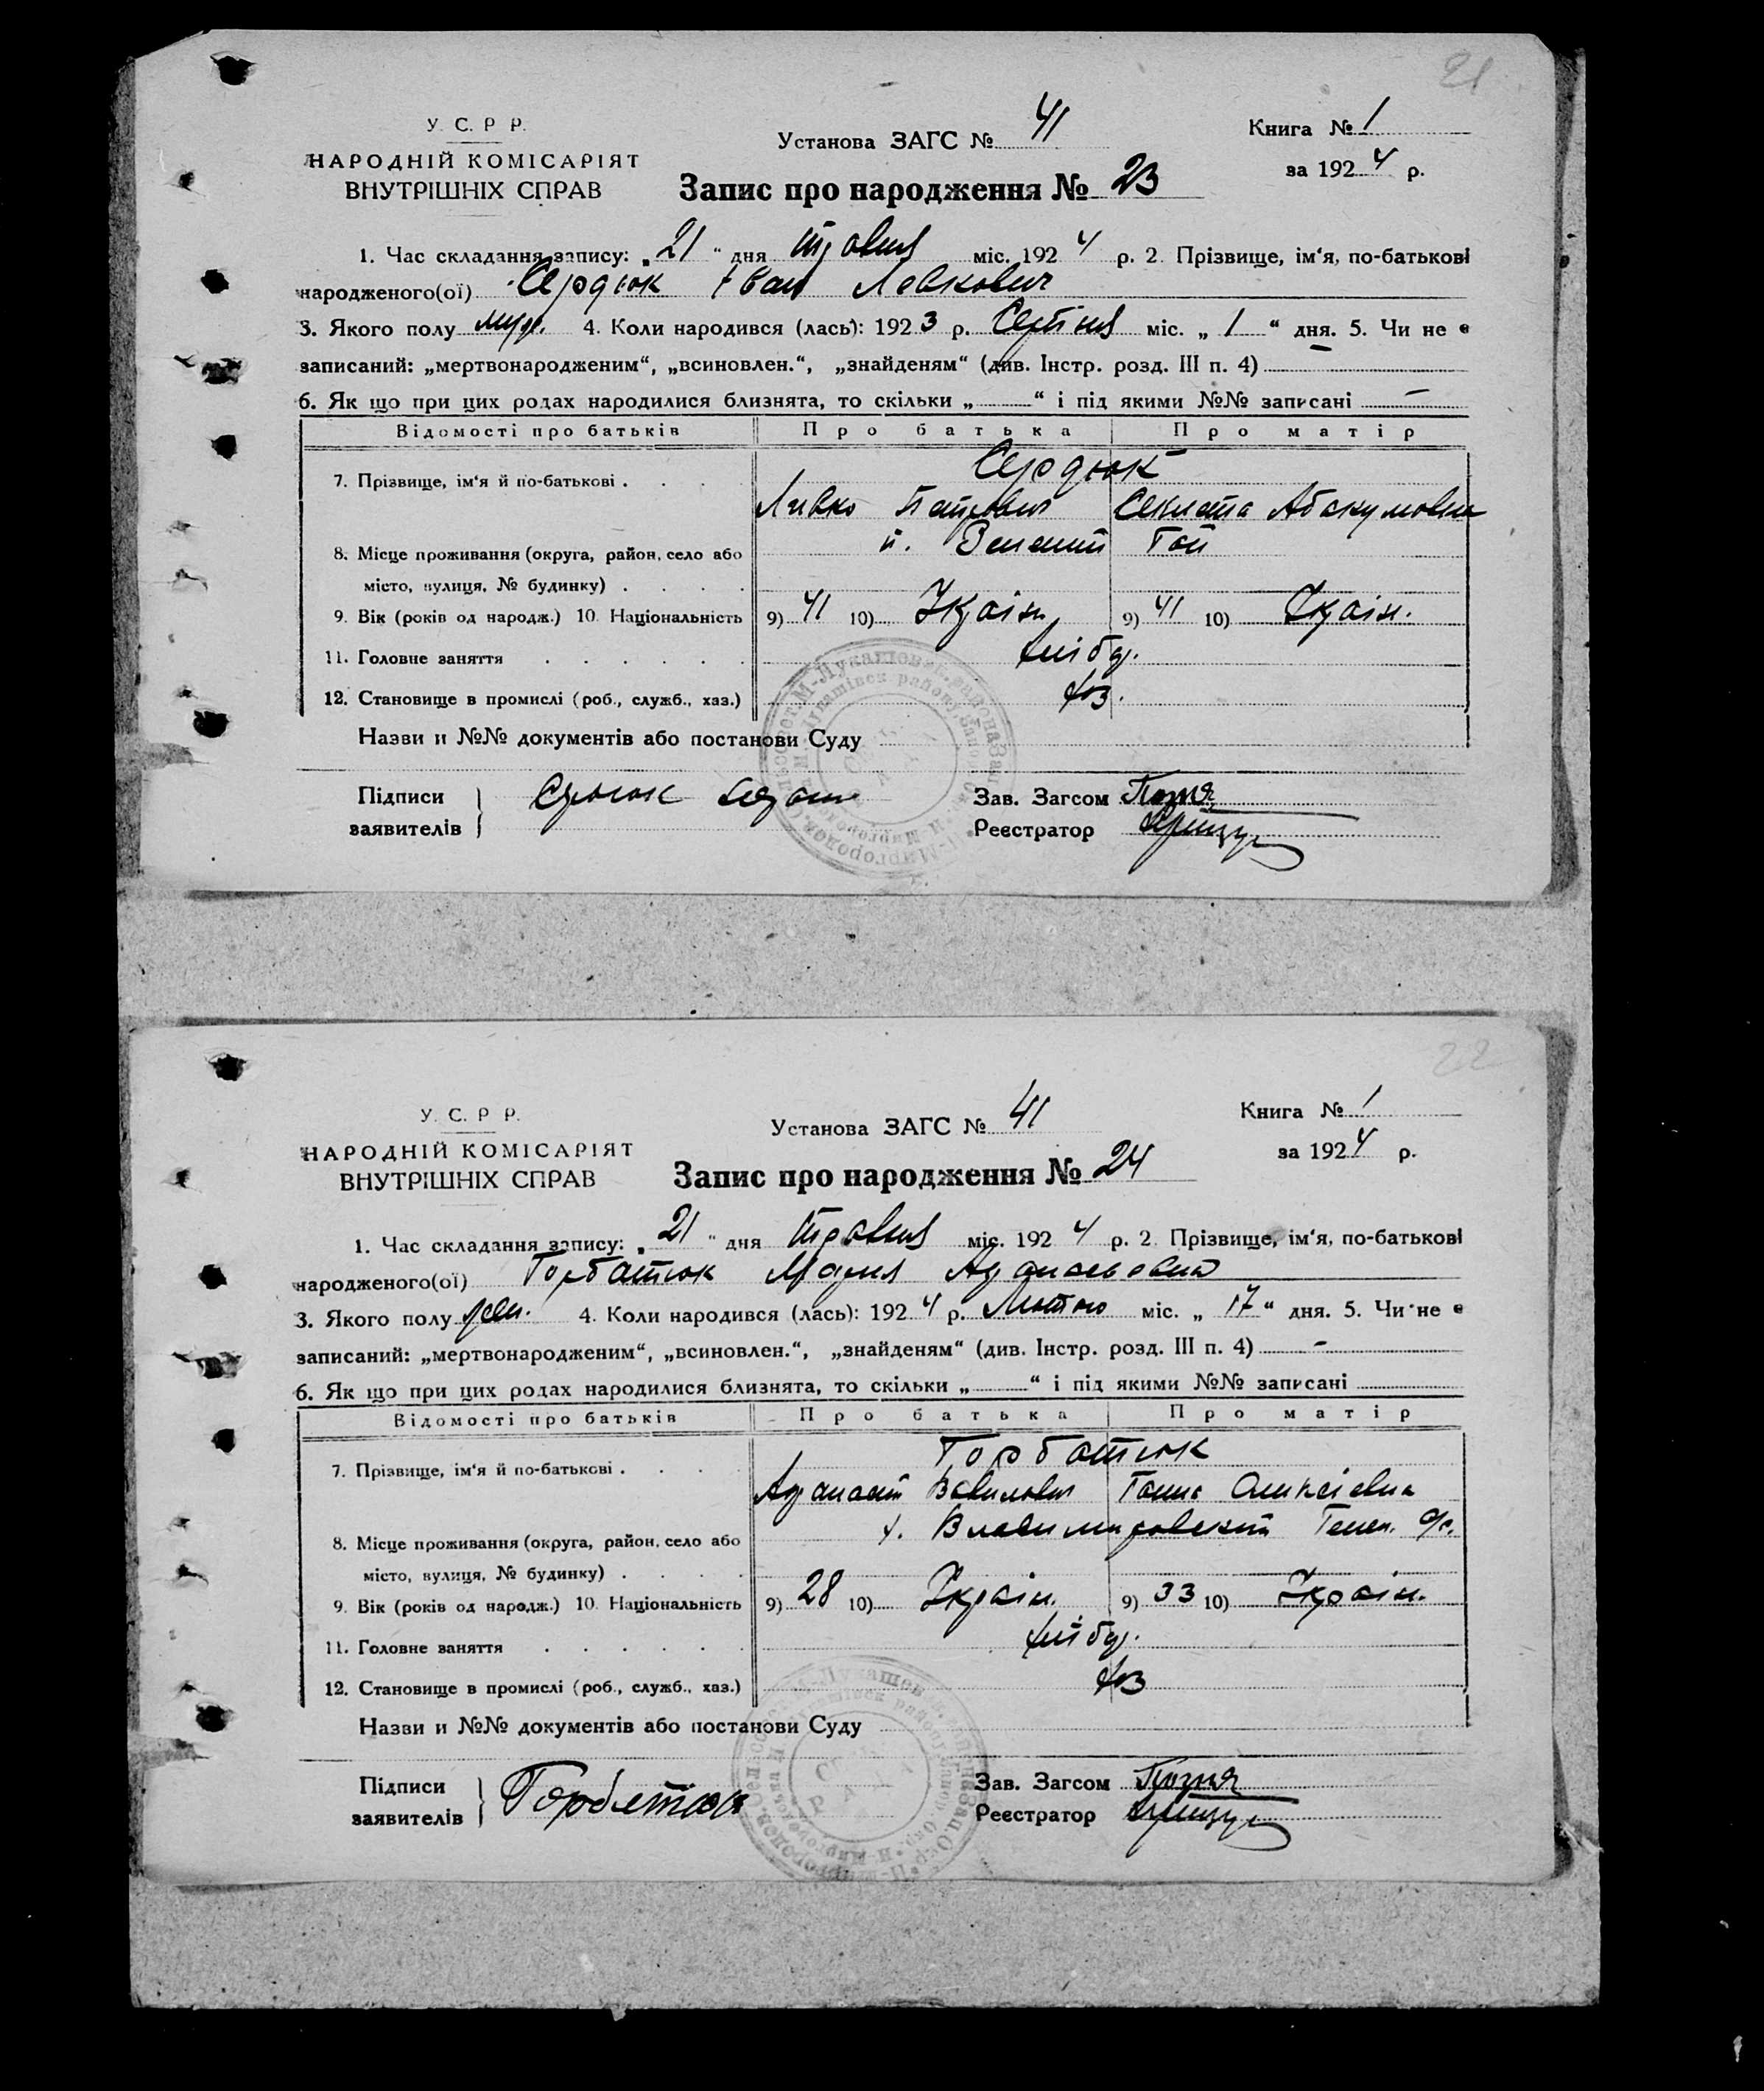 21
У. С. Р. Р.
НАРОДНІЙ КОМІСАРІЯТ
ВНУТРІШНІХ СПРАВ
Установа ЗАГС № 41
Книга № 1
за 1924 р.
Запис про народження № 23
1. Час складання запису: „21“ дня Травня міс. 1924 р. 2. Прізвище, ім‘я, по-батькові
народженого(ої) Сердюк Іван Левкович
3. Якого полу муж. 4. Коли народився (лась): 1923 р. Серпня міс. „1“ дня. 5. Чи не є
записаний: „мертвонародженим“, „всиновлен.“, „знайденям“ (див. Інстр. розд. III п. 4) —
6. Як що при цих родах народилися близнята, то скільки „ “ і під якими №№ записані —
Відомості про батьків Про батька Про матір
Сердюк
7. Прізвище, ім‘я й по-батькові
Левко Петрович Секлета Абакумовна
8. Місце проживання (округа, район, село або п. Зелений Гай
місто, вулиця, № будинку)
9. Вік (років од народж.) 10. Національність 9) 41 10) Україн. 9) 41 10) Україн.
11. Головне заняття хлібор.
12. Становище в промислі (роб., служб., хаз.) хаз.
Назви и №№ документів або постанови Суду
Підписи
заявителів
Зав. Загсом
Реєстратор
22
У. С. Р. Р.
НАРОДНІЙ КОМІСАРІЯТ
ВНУТРІШНІХ СПРАВ
Установа ЗАГС № 41
Книга № 1
за 1924 р.
Запис про народження № 24
1. Час складання запису: „21“ дня Травня міс. 1924 р. 2. Прізвище, ім‘я, по-батькові
народженого(ої) Горбатюк Мария Афанасьевна
3. Якого полу жен. 4. Коли народився (лась): 1924 р. Лютого міс. „17“ дня. 5. Чи не є
записаний: „мертвонародженим“, „всиновлен.“, „знайденям“ (див. Інстр. розд. III п. 4) -
6. Як що при цих родах народилися близнята, то скільки „ “ і під якими №№ записані
Відомості про батьків Про батька Про матір
Горбатюк
7. Прізвище, ім‘я й по-батькові
Афанасит Вавилович Ганна Оликсієвна
8. Місце проживання (округа, район, село або х. Владимировский
місто, вулиця, № будинку)
9. Вік (років од народж.) 10. Національність 9) 28 10) Україн. 9) 33 10) Україн.
11. Головне заняття хлібор.
12. Становище в промислі (роб., служб., хаз.) хаз
Назви и №№ документів або постанови Суду
Підписи
заявителів Горбатюк
Зав. Загсом
Реєстратор